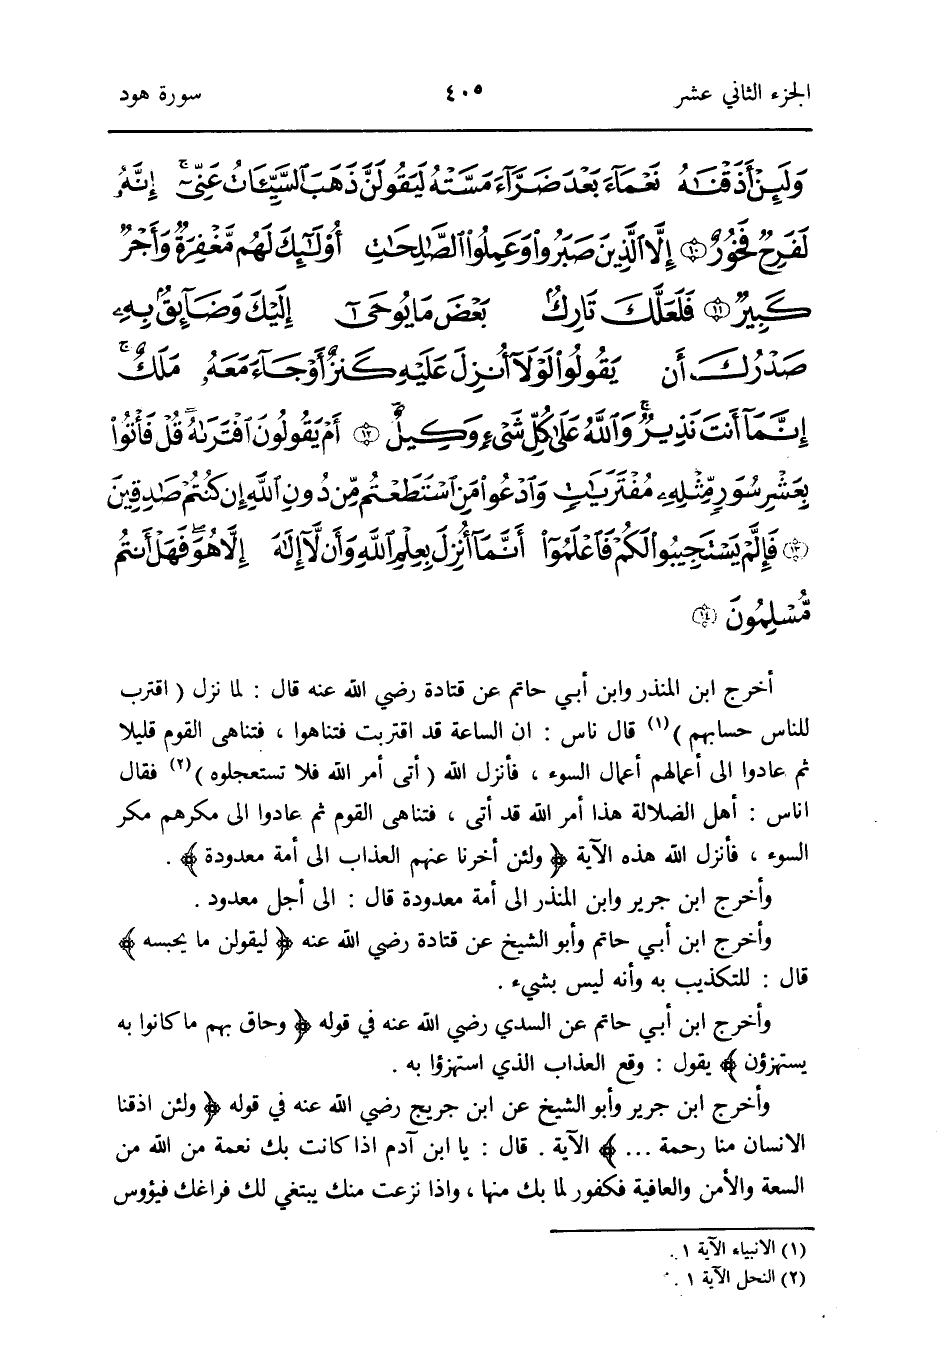 الجزء الثاني عشر ٤٠٥ سورة هود
وَلَئِنْ أَذَقْنَاهُ نَعْمَآءَ بَعْدَ ضَرَّآءَ مَسَّتْهُ لَيَقُولَنَّ ذَهَبَ السَّيِّئَاتُ عَنِّىٓ ۚ إِنَّهُۥ
لَفَرِحٌ فَخُورٌ ﴿١٠﴾ إِلَّا الَّذِينَ صَبَرُوا۟ وَعَمِلُوا۟ الصَّٰلِحَٰتِ أُو۟لَٰٓئِكَ لَهُم مَّغْفِرَةٌ وَأَجْرٌ
كَبِيرٌ ﴿١١﴾ فَلَعَلَّكَ تَارِكٌۢ بَعْضَ مَا يُوحَىٰٓ إِلَيْكَ وَضَآئِقٌۢ بِهِۦ
صَدْرُكَ أَن يَقُولُوا۟ لَوْلَآ أُنزِلَ عَلَيْهِ كَنزٌ أَوْ جَآءَ مَعَهُۥ مَلَكٌ ۚ
إِنَّمَآ أَنتَ نَذِيرٌ ۚ وَاللَّهُ عَلَىٰ كُلِّ شَىْءٍ وَكِيلٌ ﴿١٢﴾ أَمْ يَقُولُونَ افْتَرَىٰهُ ۖ قُلْ فَأْتُوا۟
بِعَشْرِ سُوَرٍ مِّثْلِهِۦ مُفْتَرَيَٰتٍ وَادْعُوا۟ مَنِ اسْتَطَعْتُم مِّن دُونِ اللَّهِ إِن كُنتُمْ صَٰدِقِينَ
﴿١٣﴾ فَإِلَّمْ يَسْتَجِيبُوا۟ لَكُمْ فَاعْلَمُوٓا۟ أَنَّمَآ أُنزِلَ بِعِلْمِ اللَّهِ وَأَن لَّآ إِلَٰهَ إِلَّا هُوَ ۖ فَهَلْ أَنتُم
مُّسْلِمُونَ ﴿١٤﴾
أخرج ابن المنذر وابن أبـي حاتم عن قتادة رضي الله عنه قال : لما نزل ( اقترب
للناس حسابهم )(١) قال ناس : ان الساعة قد اقتربت فتناهوا ، فتناهى القوم قليلا
ثم عادوا الى أعمالهم أعمال السوء ، فأنزل الله ( أتى أمر الله فلا تستعجلوه )(٢) فقال
اناس : أهل الضلالة هذا أمر الله قد أتى ، فتناهى القوم ثم عادوا الى مكرهم مكر
السوء ، فأنزل الله هذه الآية ﴿ ولئن أخرنا عنهم العذاب الى أمة معدودة ﴾ .
وأخرج ابن جرير وابن المنذر الى أمة معدودة قال : الى أجل معدود .
وأخرج ابن أبـي حاتم وأبو الشيخ عن قتادة رضي الله عنه ﴿ ليقولن ما يحبسه ﴾
قال : للتكذيب به وأنه ليس بشيء .
وأخرج ابن أبـي حاتم عن السدي رضي الله عنه في قوله ﴿ وحاق بهم ما كانوا به
يستهزؤن ﴾ يقول : وقع العذاب الذي استهزؤا به .
وأخرج ابن جرير وأبو الشيخ عن ابن جريج رضي الله عنه في قوله ﴿ ولئن اذقنا
الانسان منا رحمة ... ﴾ الآية . قال : يا ابن آدم اذا كانت بك نعمة من الله من
السعة والأمن والعافية فكفور لما بك منها ، واذا نزعت منك يبتغي لك فراغك فيؤوس
(١) الانبياء الآية ١ .
(٢) النحل الآية ١ .